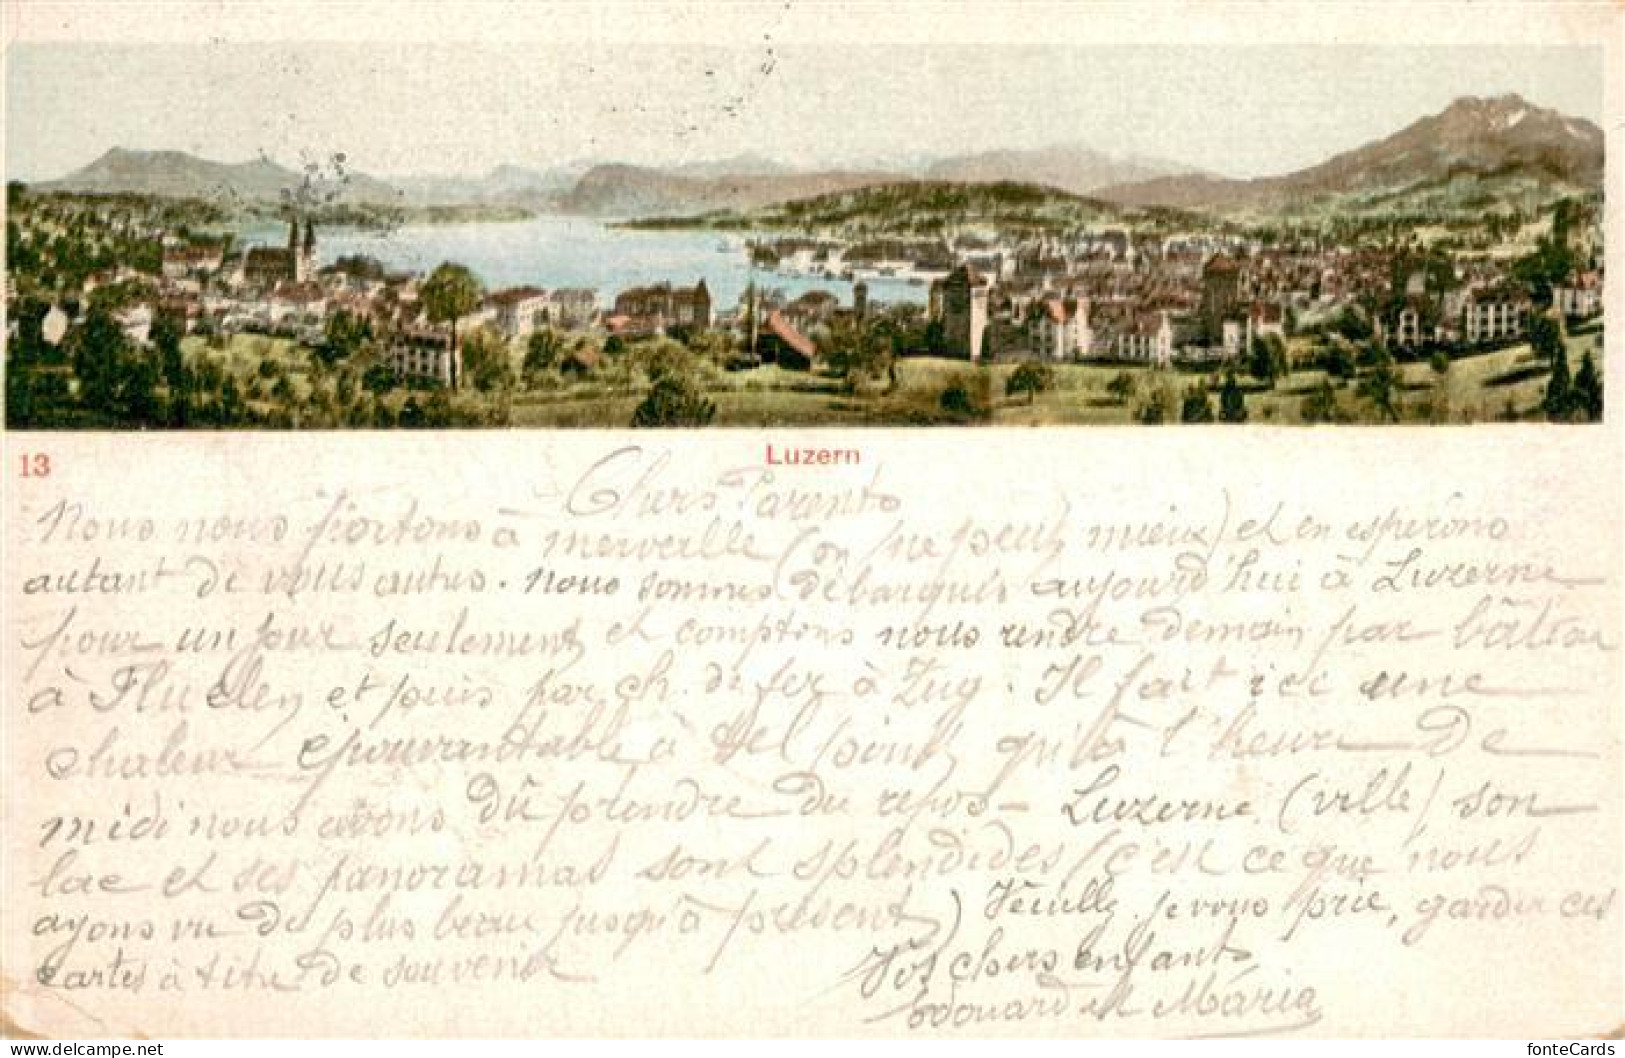 13
Luzern
Chers Parents
Nous nous portons à merveille (on ne peut mieux) et en espérons
autant de vous autres. Nous sommes débarqués aujourd'hui à Luzerne
pour un jour seulement et comptons nous rendre demain par bâteau
à Fluelen et puis par ch. de fer à Zug. Il fait ici une
chaleur épouvantable à tel point qu'à l'heure de
midi nous avons dû prendre du repos - Luzerne (ville) son
lac et ses panoramas sont splendides (c'est ce que nous
ayons vu de plus beau jusqu'à présent) Veuillez, je vous prie, garder ces
cartes à titre de souvenir
Vos chers enfants
Edouard et Maria
delcampe.net
fonteCards